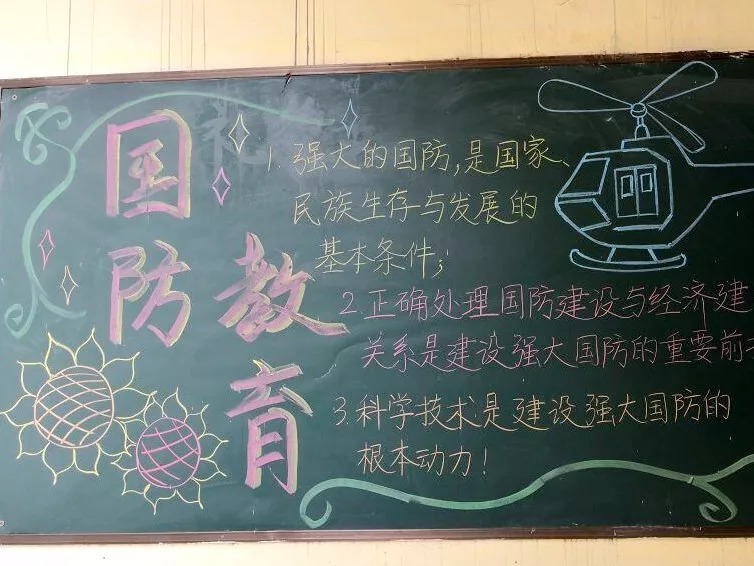 国防
教育
1. 强大的国防,是国家、
民族生存与发展的
基本条件;
2. 正确处理国防建设与经济建
关系是建设强大国防的重要前
3. 科学技术是建设强大国防的
根本动力!